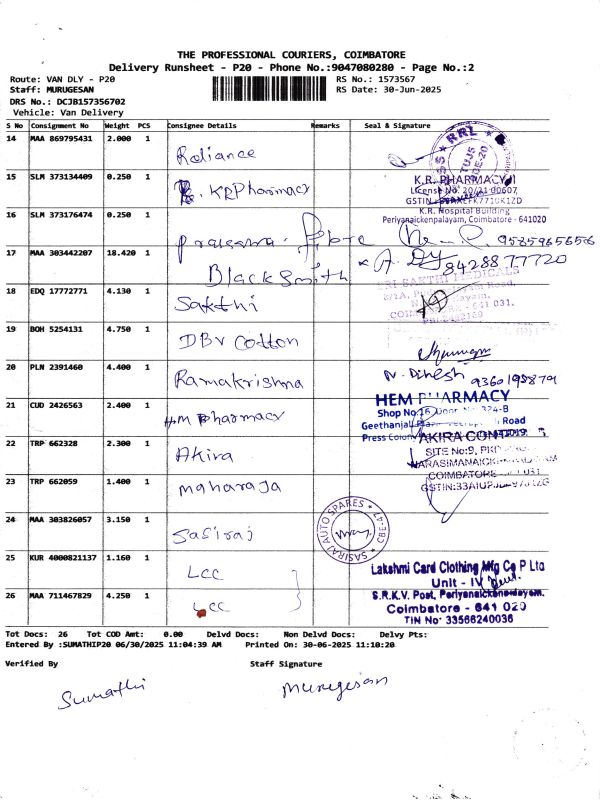 THE PROFESSIONAL COURIERS, COIMBATORE
Delivery Runsheet - P20 - Phone No.:9047080280 - Page No.:2
Route: VAN DLY - P20
RS No.: 1573567
Staff: MURUGESAN
RS Date: 30-Jun-2025
DRS No.: DCJB157356702
Vehicle: Van Delivery
S No Consignment No Weight PCS Consignee Details Remarks Seal & Signature
14 MAA 869795431 2.000 1 Reliance
RRL
15 SLM 373134409 0.250 1 KR Pharmacy
K.R. PHARMACY
License No: 20/21 00607
K.R. Hospital Building
Periyanaickenpalayam, Coimbatore - 641020
16 SLM 373176474 0.250 1
9585965656
17 MAA 303442207 18.420 1 Blacksmith
8428877720
18 EDQ 17772771 4.130 1 Sakthi
SRI SAKTHI MEDICALS
19 BOH 5254131 4.750 1 DBV Cotton
20 PLN 2391460 4.400 1 Ramakrishna
N. Dinesh
21 CUD 2426563 2.400 1 HM Pharmacy
HEM PHARMACY
22 TRP 662328 2.300 1 Akira
AKIRA
SITE No:9,
COIMBATORE
23 TRP 662059 1.400 1 maharaja
24 MAA 303826057 3.150 1 Sasiraj
SASIRAJ AUTO SPARES
CBE-47
25 KUR 4000821137 1.160 1 LCC
26 MAA 711467829 4.250 1 LCC
Lakshmi Card Clothing Mfg Co P Ltd
Unit - IV
S.R.K.V. Post, Periyanaickenpalayam.
Coimbatore - 641 020
TIN No: 33566240036
Tot Docs: 26 Tot COD Amt: 0.00 Delvd Docs: Non Delvd Docs: Delvy Pts:
Entered By :SUMATHIP20 06/30/2025 11:04:39 AM Printed On: 30-06-2025 11:10:20
Verified By Staff Signature
Sumathi Murugesan